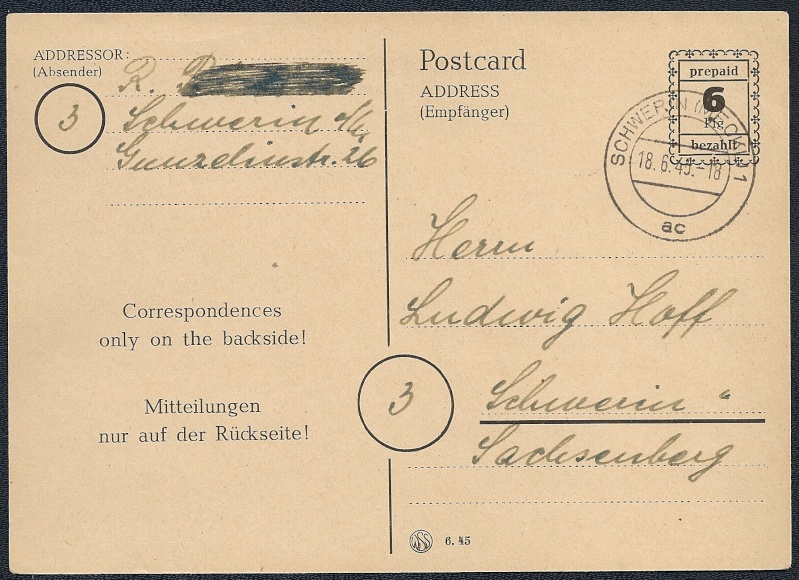 ADDRESSOR:
(Absender)
R.
3
Schwerin
Gunzelinstr. 26
Correspondences
only on the backside!
Mitteilungen
nur auf der Rückseite!
Postcard
ADDRESS
(Empfänger)
prepaid
6
bezahlt
SCHWERIN (MECKL) 1
18.6.45.-18
ac
Herrn
Ludwig Hoff
3
Schwerin
Sachsenberg
6.45